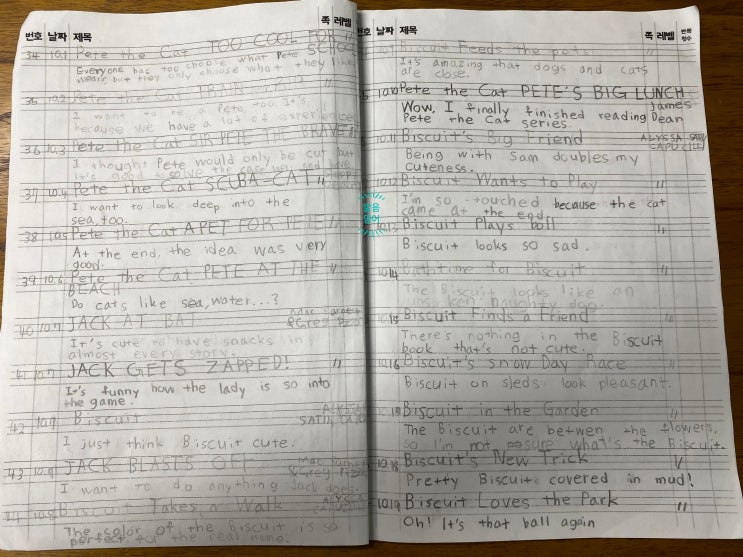 번호 날짜 제목 쪽 레벨
34 10.1 Pete the Cat TOO COOL FOR "
SCHOOL
Everyone has too choose what Pete
wear, but they only choose what they like.
35 10.2 Pete the Cat TRAIN TRIP "
I want to be a Pete, too. It's
because we have a lot of experience.
36 10.3 Pete the Cat SIR PETE BRAVE "
I thought Pete would only be cut but
it's good to solve the case
37 10.4 Pete the Cat SCUBA-CAT "
I want to look deep into the
sea, too.
38 10.5 Pete the Cat A PET FOR PETE "
At the end, the idea was very
good.
39 10.6 Pete the Cat PETE AT THE "
BEACH
Do cats like sea, water...?
40 10.7 JACK AT BAT Mac Barnett
&Greg Pizzoli
It's cute to have snacks in
almost every story.
41 10.7 JACK GETS ZAPPED! "
It's funny how the lady is so into
the game.
42 10.7 Biscuit ALYSSA
SATIN CAPUCILLI
I just think Biscuit cute.
43 JACK BLASTS OFF Mac Barnett
&Greg Pizzoli
I want to do anything Jack does.
44 10.8 Biscuit Takes a Walk ALYSSA
The color of the Biscuit is so
perfect for the real name.
번호 날짜 제목 쪽 레벨 반복 횟수
Biscuit Feeds the pets "
It's amazing that dogs and cats
are close.
10.10 Pete the Cat PETE'S BIG LUNCH
James
Dean
Wow, I finally finished reading
Pete the Cat series.
10.11 Biscuit's Big Friend ALYSSA SATIN
CAPUCILLI
Being with Sam doubles my
cuteness.
10.12 Biscuit Wants to Play "
I'm so touched because the cat
came at the end.
10.13 Biscuit Plays ball "
Biscuit looks so sad.
10.14 Bathtime for Biscuit "
The Biscuit looks like an
unspoken, naughty dog.
10.15 Biscuit Finds a Friend "
There's nothing in the Biscuit
book that's not cute.
10.16 Biscuit's Snow Day Race "
Biscuit on sleds look pleasant.
Biscuit in the Garden "
The Biscuit are betwen the flowers,
so I'm not sure what's the Biscuit.
10.18 Biscuit's New Trick
Pretty Biscuit covered in mud!
10.19 Biscuit Loves the Park "
Oh! It's that ball again